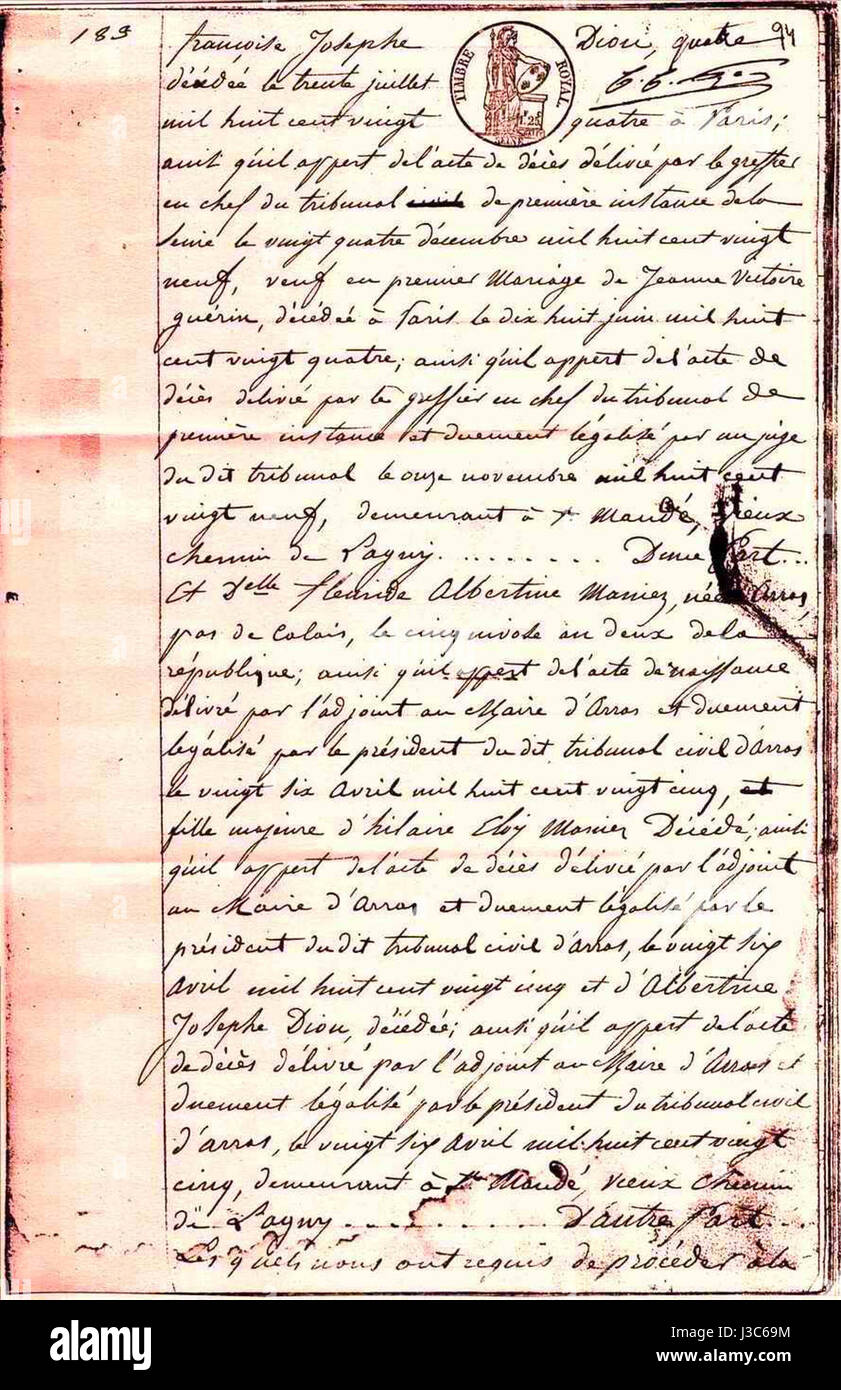 183
94
françoise Josephe Dion, quatre
décédée le trente juillet
mil huit cent vingt quatre à Paris;
TIMBRE ROYAL
1F 25C
SEINE
ainsi qu'il appert de l'acte de décès délivré par le greffier
en chef du tribunal civil de première instance de la
Seine le vingt quatre décembre mil huit cent vingt
neuf, veuf en premier Mariage de Jeanne Victoire
guérin, décédée à Paris le dix huit juin mil huit
cent vingt quatre; ainsi qu'il appert de l'acte de
décès délivré par le greffier en chef du tribunal de
première instance et duement légalisé par un juge
du dit tribunal le onze novembre mil huit cent
vingt neuf, demeurant à St Mandé, vieux
chemin de Lagny. . . . . . . . . D'une Part . . .
Et Delle fleuride Albertine Maniez, née à Arras,
pas de Calais, le cinq nivose an deux de la
république; ainsi qu'il appert de l'acte de naissance
délivré par l'adjoint au Maire d'Arras et duement
légalisé par le président du dit tribunal civil d'arras
le vingt six Avril mil huit cent vingt cinq, et
fille majeure d'hilaire Eloy Maniez Décédé; ainsi
qu'il appert de l'acte de décès délivré par l'adjoint
au Maire d'Arras, et duement légalisé par le
président du dit tribunal civil d'Arras, le vingt six
Avril mil huit cent vingt cinq et d'Albertine
Josephe Dion, décédée; ainsi qu'il appert de l'acte
de décès délivré par l'adjoint au Maire d'Arras et
duement légalisé par le président du tribunal civil
d'arras, le vingt six Avril mil huit cent vingt
cinq, demeurant à St Mandé, vieux chemin
de Lagny . . . . . . . . . d'autre Part . . .
Les quels nous ont requis de procéder à la
alamy
Image ID: J3C69M
www.alamy.com